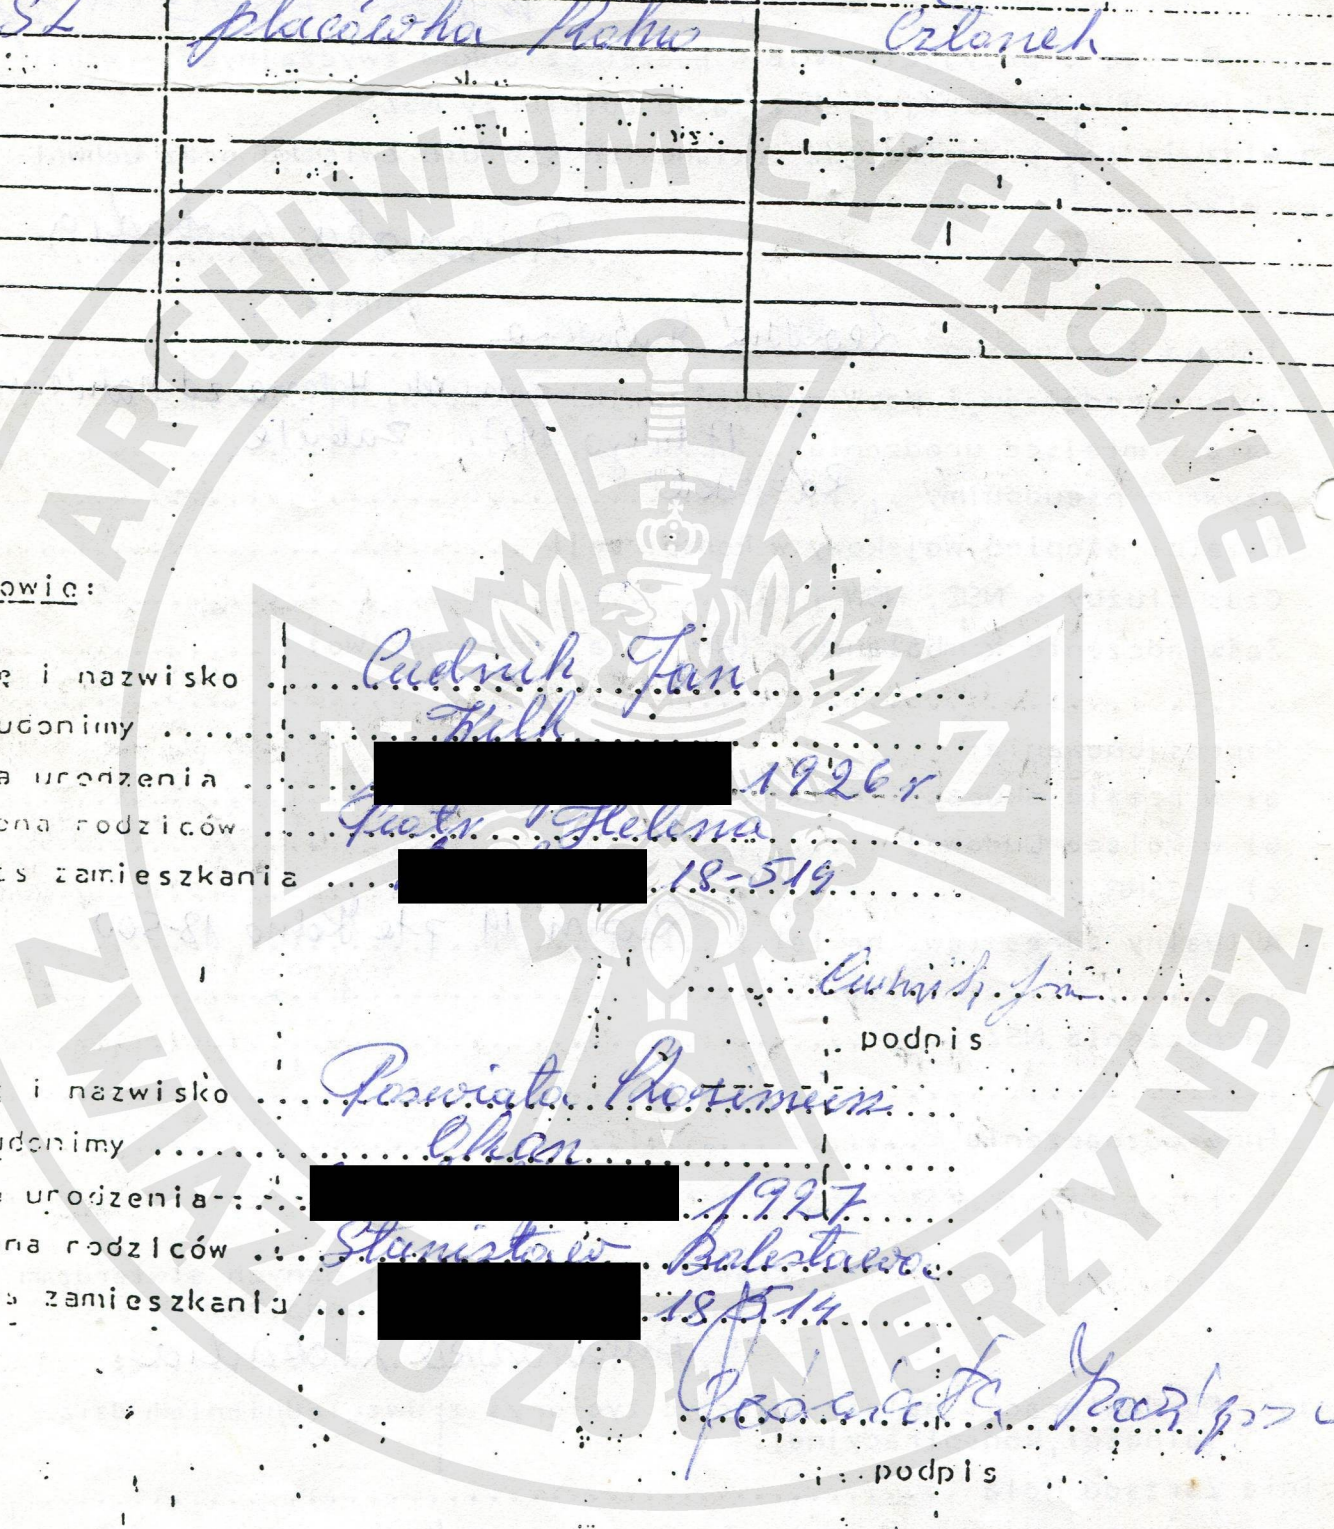 SZ placówka Kolno Członek
ARCHIWUM CYFROWE
owie:
ę i nazwisko Cudnik Jan
udonimy Wilk
a urodzenia 1926 r
ona rodziców Piotr Helena
s zamieszkania 18-519
Cudnik Jan
podpis
i nazwisko Poświata Kazimierz
udonimy Okoń
urodzenia 1927
na rodziców Stanisław Bolesława
s zamieszkania 18-514
Poświata Kazimierz
podpis
N Z
S
ZWIĄZKU ŻOŁNIERZY NSZ